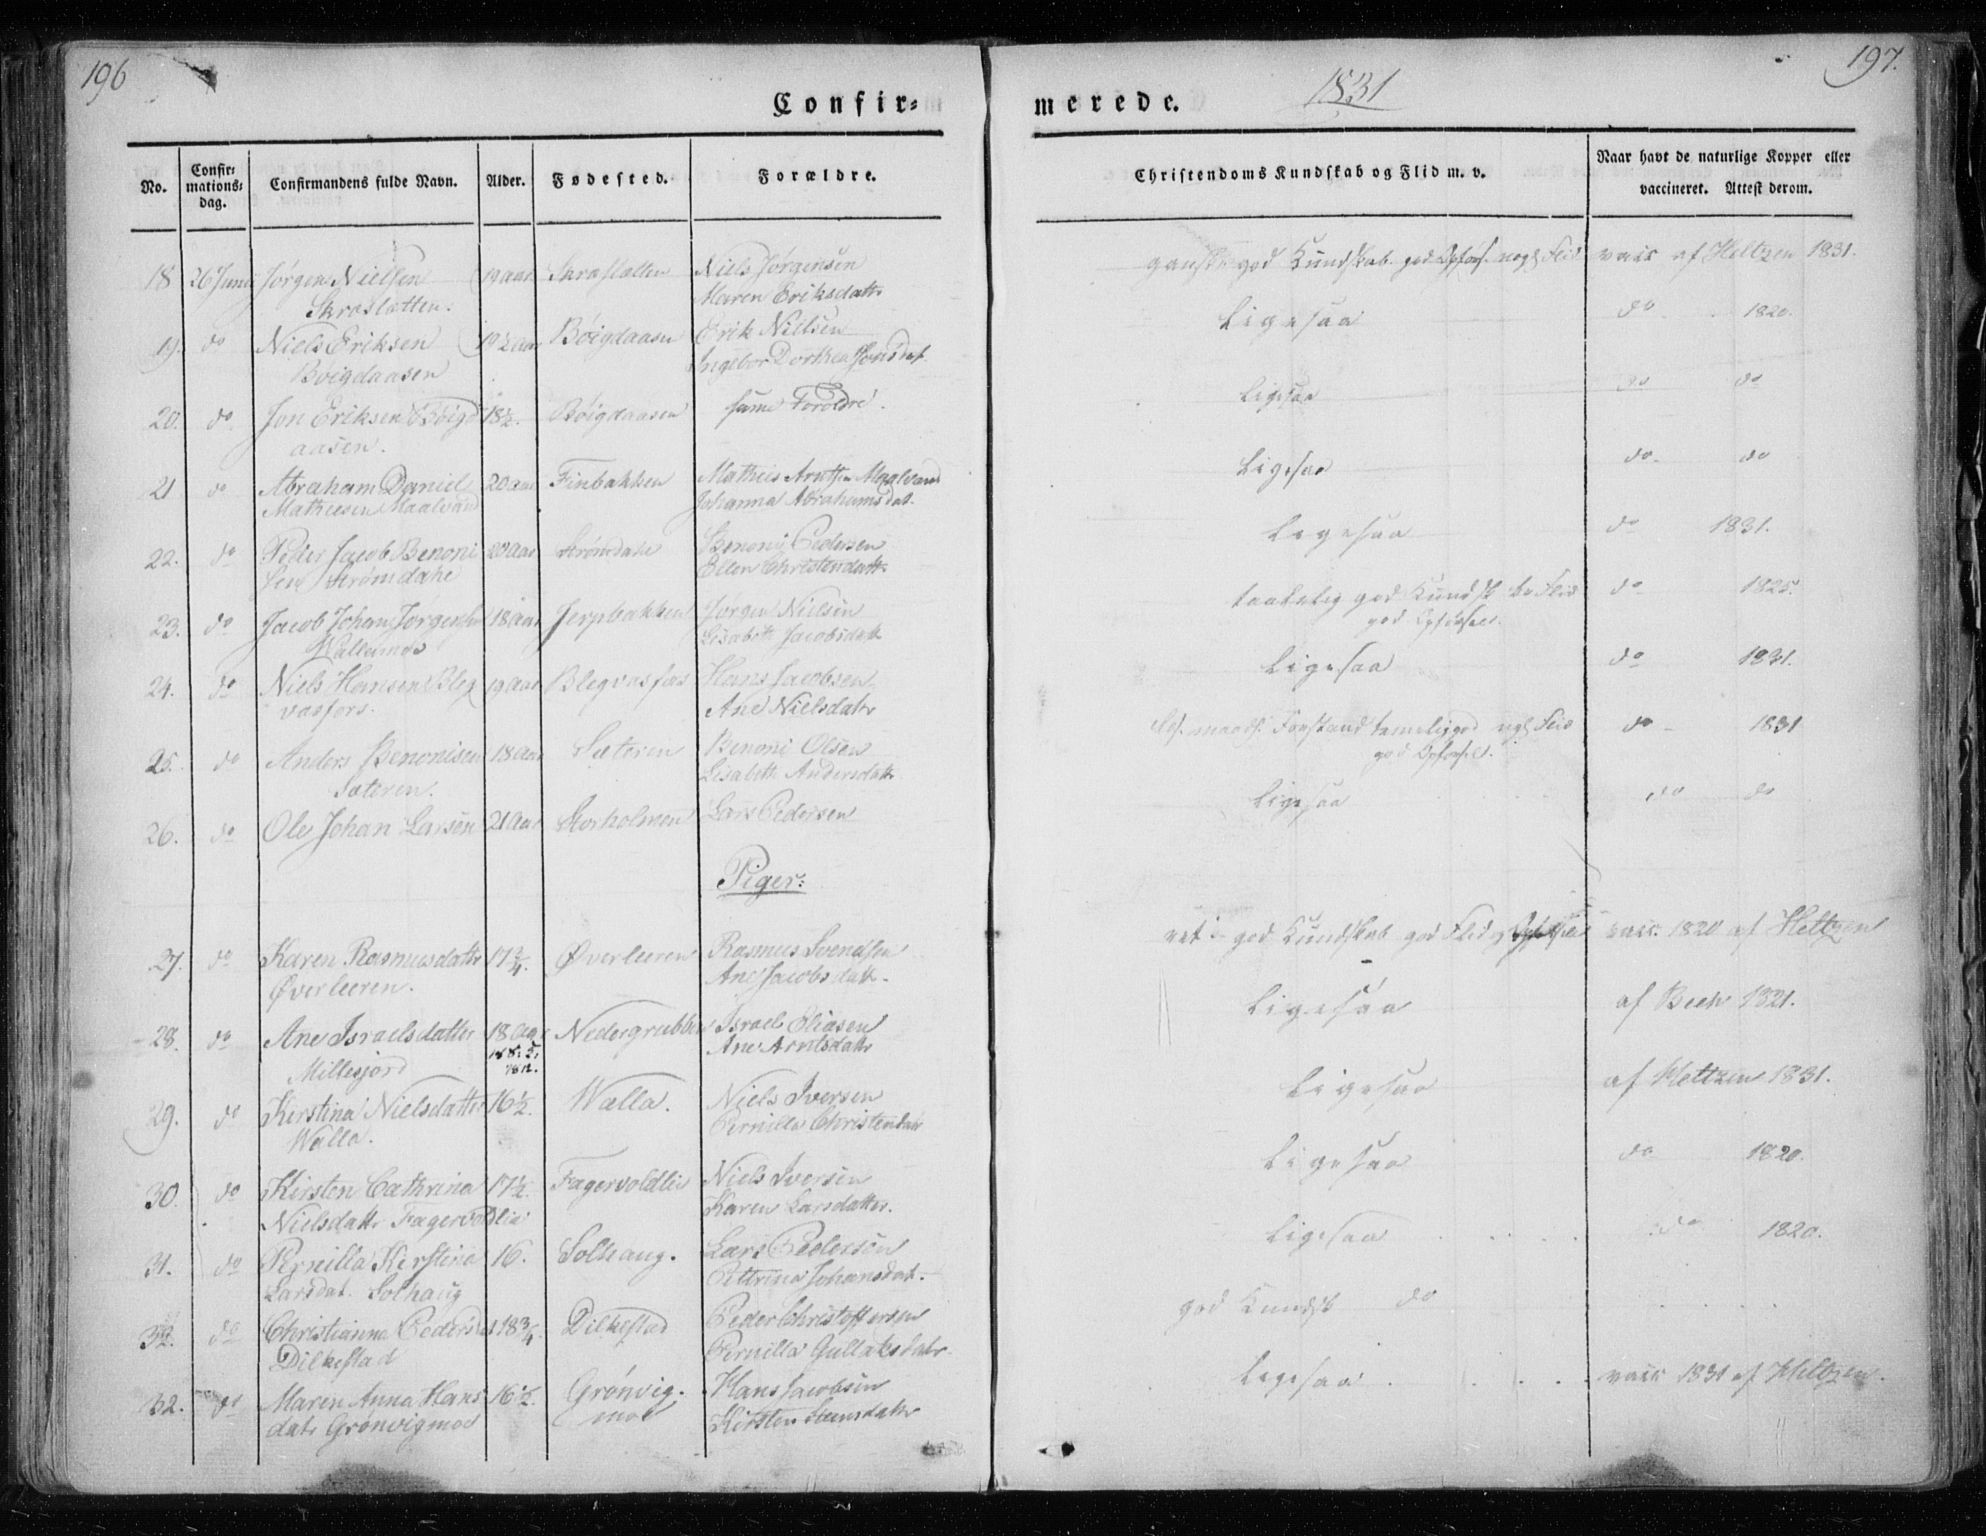 196
197.
Confir=
merede.
1831
No.
Confir=
mations=
dag.
Confirmandens fulde Navn.
Alder.
Fødested.
Forældre.
Christendoms Kundskab og Flid m. v.
Naar havt de naturlige Kopper eller
vaccineret. Attest derom.
18 26 Juni Jørgen Nielsen 19 aar Niels Jørgensen ganske god Kundskab god Opførs. Flid vacc af Heltzen 1831.
Maren Eriksdattr
19. do Niels Eriksen 19½ aar Bøigdaasen Erik Nielsen Ligesaa do 1820.
Bøigdaasen Ingebor Dorthea Jonsdat.
20. do Jon Eriksen Bøigd 18½. Bøigdaasen samme Forældre. Ligesaa do do
aasen.
21 do Abraham Daniel 20 aar Finbakken Mathies Arntsen Maalvand Ligesaa do do
Mathiesen Maalvand Johanna Abrahamsdat.
22. do Peder Jacob Benoni 20 aar Strømdahl Benoni Pedersen Ligesaa do 1831.
sen Strømdahl Ellen Christensdattr
23. do Jacob Johan Jørgensen 18 aar Jerpbakken Jørgen Nielsen taalelig god Kundsk. Flid do 1825.
Lisabeth Jacobsdattr god Opførsel.
24. do Niels Hansen Bleg 19 aar Blegvasfors Hans Jacobsen Ligesaa do 1831.
vasfors. Ane Nielsdattr
25. do Anders Benonisen 18 aar Sæteren Benoni Olsen Forstand temelig god Flid do 1831
Sæteren. Lisabeth Andersdattr god Opførsel.
26. do Ole Johan Larsen 21 aar Storholmen Lars Pedersen Ligesaa do do
Piger:
27. do Karen Rasmusdattr 17¾. Øverleeren Rasmus Svendsen god Kundskab god Flid og Opførsel vacc. 1820 af Heltzen
Øverleeren. Ane Jacobsdattr.
28. do Ane Israelsdatter 18 aar Nedergrubben Israel Eliasen Ligesaa af Bech 1821.
Millesjord Ane Arntsdattr
29. do Kirstina Nielsdatter 16½. Walla. Niels Iversen Ligesaa af Heltzen 1831.
Walla. Pernilla Christensdattr
30. do Kirsten Cathrina 17½. Fagervoldlie Niels Iversen Ligesaa do 1820.
Nielsdattr Fagervoldlia Karen Larsdatter.
31. do Pernilla Kirstina 16. Solhaug. Lars Pedersen Ligesaa do 1820.
Larsdat. Solhaug Petrina Johansdat.
32. do Christianna Pedersdat 18¾. Dilkestad Peder Christoffersen god Kundsk do
Dilkestad Pernilla Gullaksdattr.
32. do Maren Anna Hans 16½. Grønvig. Hans Jacobsen Ligesaa vacc 1831 af Heltzen.
dattr Grønvigmoe moe Kirsten